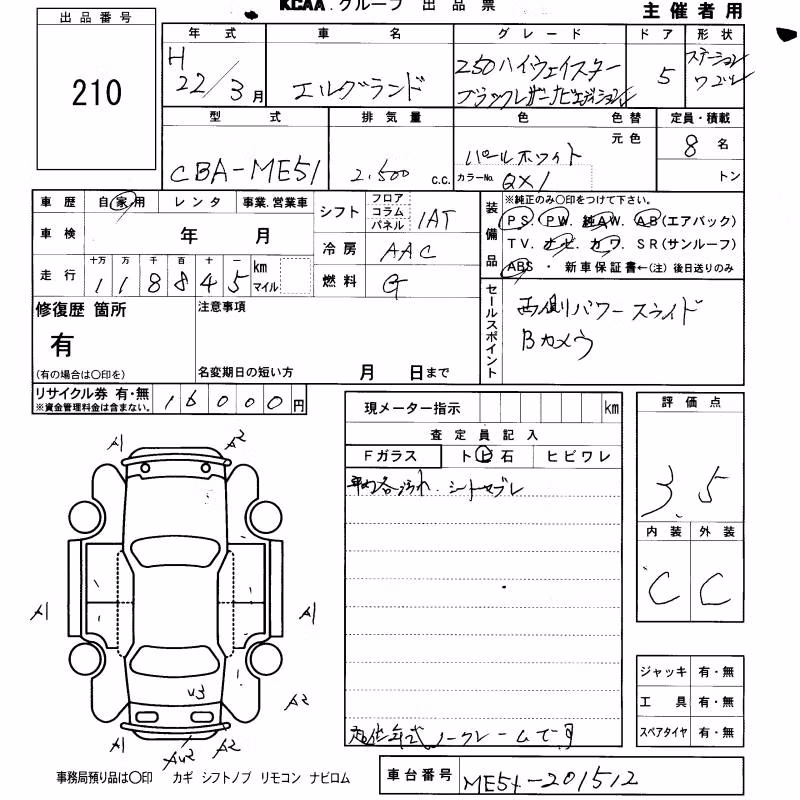 KCAA.グループ 出品票
主催者用
出品番号
210
年式
車名
グレード
ドア
形状
H 22/3月
エルグランド
250ハイウェイスター
ブラックレザーナビエディション
5
ステーション
ワゴン
型式
排気量
色
色替
定員・積載
元色
CBA-ME51
2.500 c.c.
パールホワイト
カラーNo. QX1
8名
トン
車歴
自家用
レンタ
事業.営業車
シフト
フロア
コラム
パネル
IAT
車検
年 月
冷房
AAC
走行
十万 万 千 百 十
118845
km
マイル
燃料
G
装備品
※純正のみ○印をつけて下さい。
PS. PW. 純AW. AB(エアバック)
TV. ナビ. カワ. SR(サンルーフ)
ABS ・ 新車保証書←(注) 後日送りのみ
セールスポイント
両側パワースライド
Bカメラ
修復歴 箇所
有
(有の場合は○印を)
注意事項
名変期日の短い方 月 日まで
リサイクル券 有・無
※資金管理料金は含まない。
16000円
現メーター指示
km
査定員記入
Fガラス
トビ石
ヒビワレ
評価点
3.5
内装
外装
C
C
シートヤブレ
低年式ノークレームです
A1
A2
A1
A1
U3
A2
A1
AU2
A2
ジャッキ 有・無
工具 有・無
スペアタイヤ 有・無
事務局預り品は○印 カギ シフトノブ リモコン ナビロム
車台番号
ME51-201512